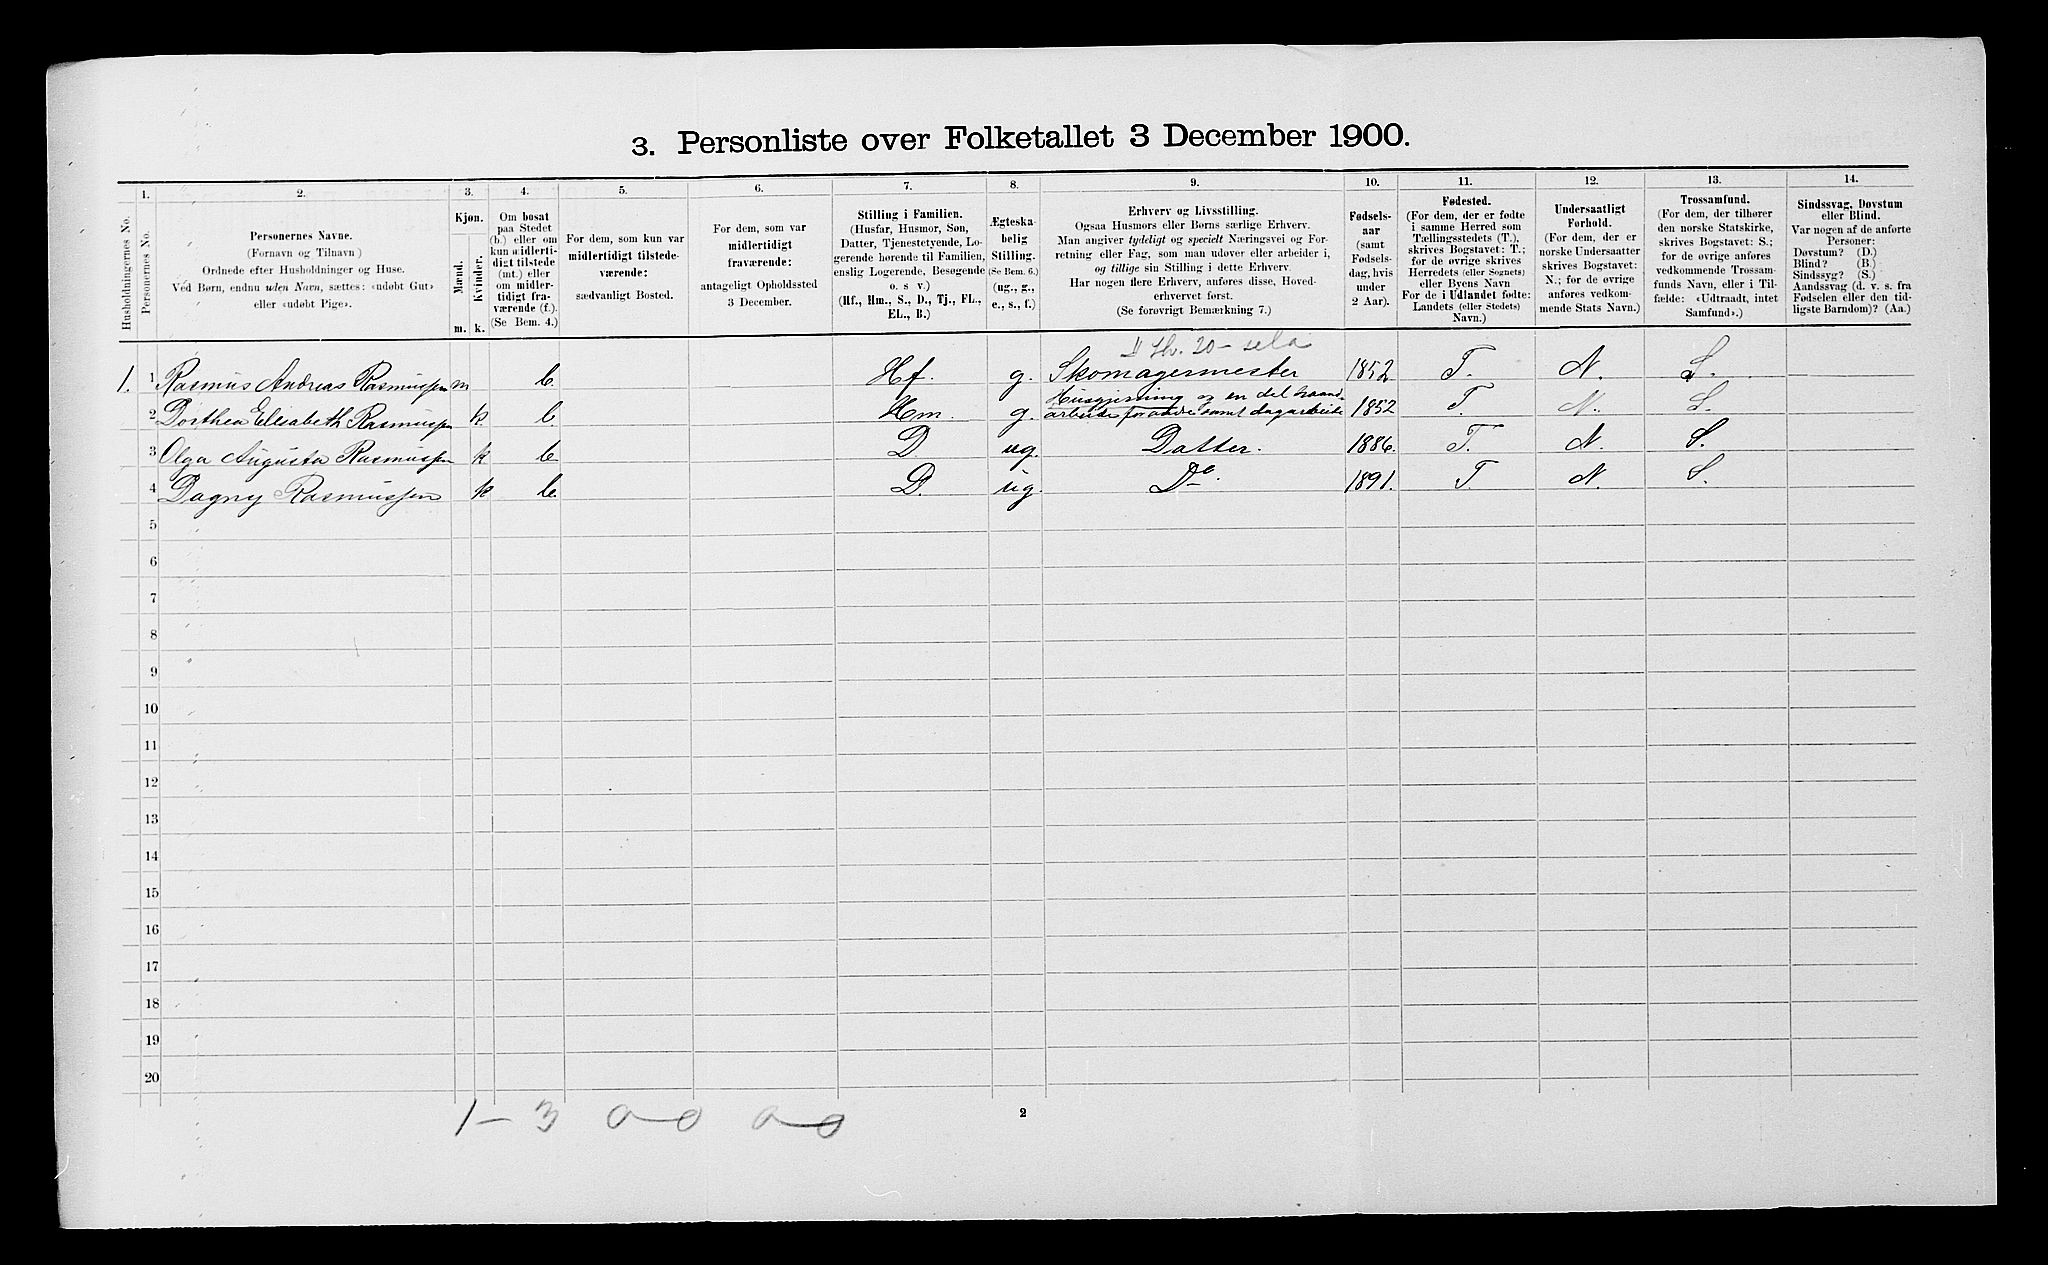 3. Personliste over Folketallet 3 December 1900.
1. 2. 3. 4. 5. 6. 7. 8. 9. 10. 11. 12. 13. 14.
Husholdningernes No.
Personernes No.
Personernes Navne.
(Fornavn og Tilnavn)
Ordnede efter Husholdninger og Huse.
Ved Børn, endnu uden Navn, sættes: «udøbt Gut»
eller «udøbt Pige».
Kjøn.
Mænd.
Kvinder.
m. k.
Om bosat
paa Stedet
(b.) eller om
kun midlerti-
digt tilstede
(mt.) eller
om midler-
tidigt fra-
værende (f.).
(Se Bem. 4.)
For dem, som kun var
midlertidigt tilstede-
værende:
sædvanligt Bosted.
For dem, som var
midlertidigt
fraværende:
antageligt Opholdssted
3 December.
Stilling i Familien.
(Husfar, Husmor, Søn,
Datter, Tjenestetyende, Lo-
gerende hørende til Familien,
enslig Logerende, Besøgende
o. s v.)
(Hf., Hm., S., D., Tj., FL.,
EL., B.)
Ægteska-
belig
Stilling.
(Se Bem. 6.)
(ug., g.,
e., s., f.)
Erhverv og Livsstilling.
Ogsaa Husmors eller Børns særlige Erhverv.
Man angiver tydeligt og specielt Næringsvei og For-
retning eller Fag, som man udøver eller arbeider i,
og tillige sin Stilling i dette Erhverv.
Har nogen flere Erhverv, anføres disse, Hoved-
erhvervet først.
(Se forøvrigt Bemærkning 7.)
Fødsels-
aar
(samt
Fødsels-
dag, hvis
under
2 Aar).
Fødested.
(For dem, der er fødte
i samme Herred som
Tællingsstedets (T.),
skrives Bogstavet: T.;
for de øvrige skrives
Herredets (eller Sognets)
eller Byens Navn
For de i Udlandet fødte:
Landets (eller Stedets)
Navn.)
Undersaatligt
Forhold.
(For dem, der er
norske Undersaatter
skrives Bogstavet:
N.; for de øvrige
anføres vedkom-
mende Stats Navn.)
Trossamfund.
(For dem, der tilhører
den norske Statskirke,
skrives Bogstavet: S.;
for de øvrige anføres
vedkommende Trossam-
funds Navn, eller i Til-
fælde: «Udtraadt, intet
Samfund».)
Sindssvag, Døvstum
eller Blind.
Var nogen af de anførte
Personer:
Døvstum? (D.)
Blind? (B.)
Sindssyg? (S.)
Aandssvag (d. v. s. fra
Fødselen eller den tid-
ligste Barndom)? (Aa.)
1. 1 Rasmus Andreas Rasmussen m b Hf. g. Skomagermester 1852 T. N. S.
2 Dorthea Elisabeth Rasmussen k b Hm. g. Husgjerning og en del haand-
arbeide for andre samt dagarbeide 1852 T. N. S.
3 Olga Augusta Rasmussen k b D ug. Datter. 1886. T. N. S.
4 Dagny Rasmussen k b. D. ug. Do. 1891. T. N. S.
5
6
7
8
9
10
11
12
13
14
15
16
17
18
19
20
1 - 3 0 - 0 0 - 0
2